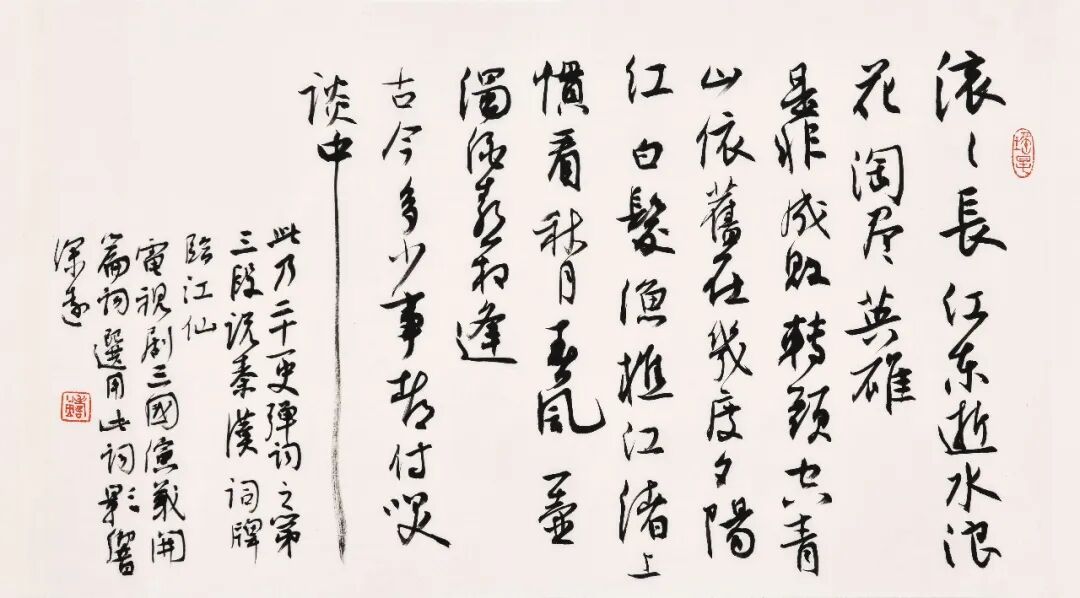 滚々長江东逝水浪
花淘尽英雄
是非成败轉頭空青
山依舊在幾度夕陽
红白髮渔樵江渚上
慣看秋月春風一壶
濁酒喜相逢
古今多少事都付笑
谈中
此乃二十一史弹词之第
三段说秦漢词牌
臨江仙
電視剧三國演義開
篇词選用此词影響
深遠